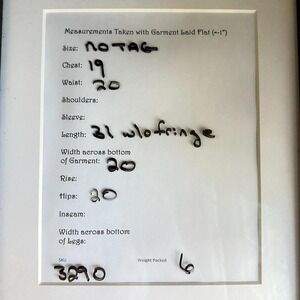 Measurements Taken with Garment Laid Flat (~1")
Size: NO TAG
Chest: 19
Waist: 20
Shoulders:
Sleeve:
Length: 31 w/o fringe
Width across bottom
of Garment: 20
Rise:
Hips: 20
Inseam:
Width across bottom
of Legs:
SKU Weight Packed
3290 6